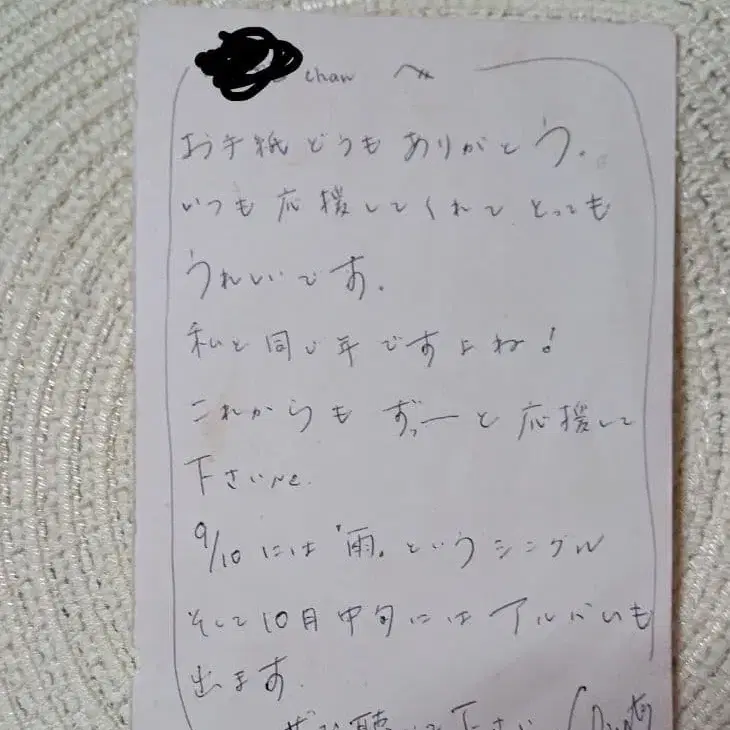 chan へ
お手紙どうもありがとう。
いつも応援してくれてとっても
うれしいです。
私と同じ年ですよね!
これからもずっーと応援して
下さいNe.
9/10には「雨」というシングル
そして10月中旬にはアルバムも
出ます.
ぜひ聴いて下さい